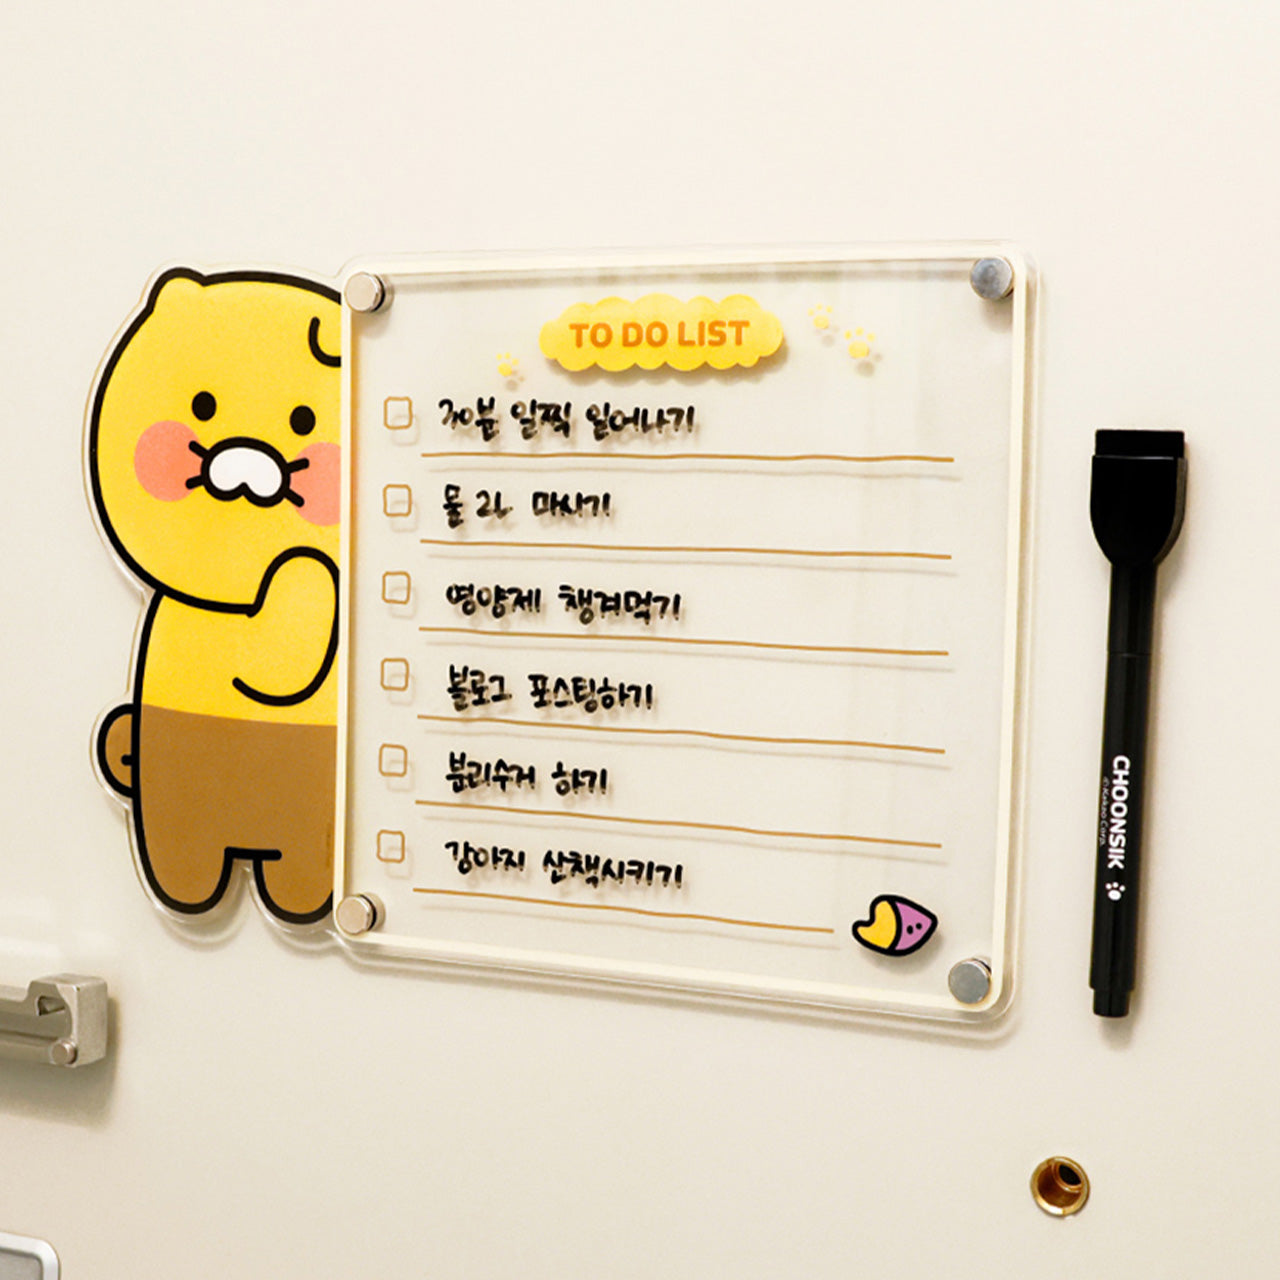 TO DO LIST
30분 일찍 일어나기
물 2L 마시기
영양제 챙겨먹기
블로그 포스팅하기
분리수거 하기
강아지 산책시키기
CHOONSIK
© Kakao Corp.